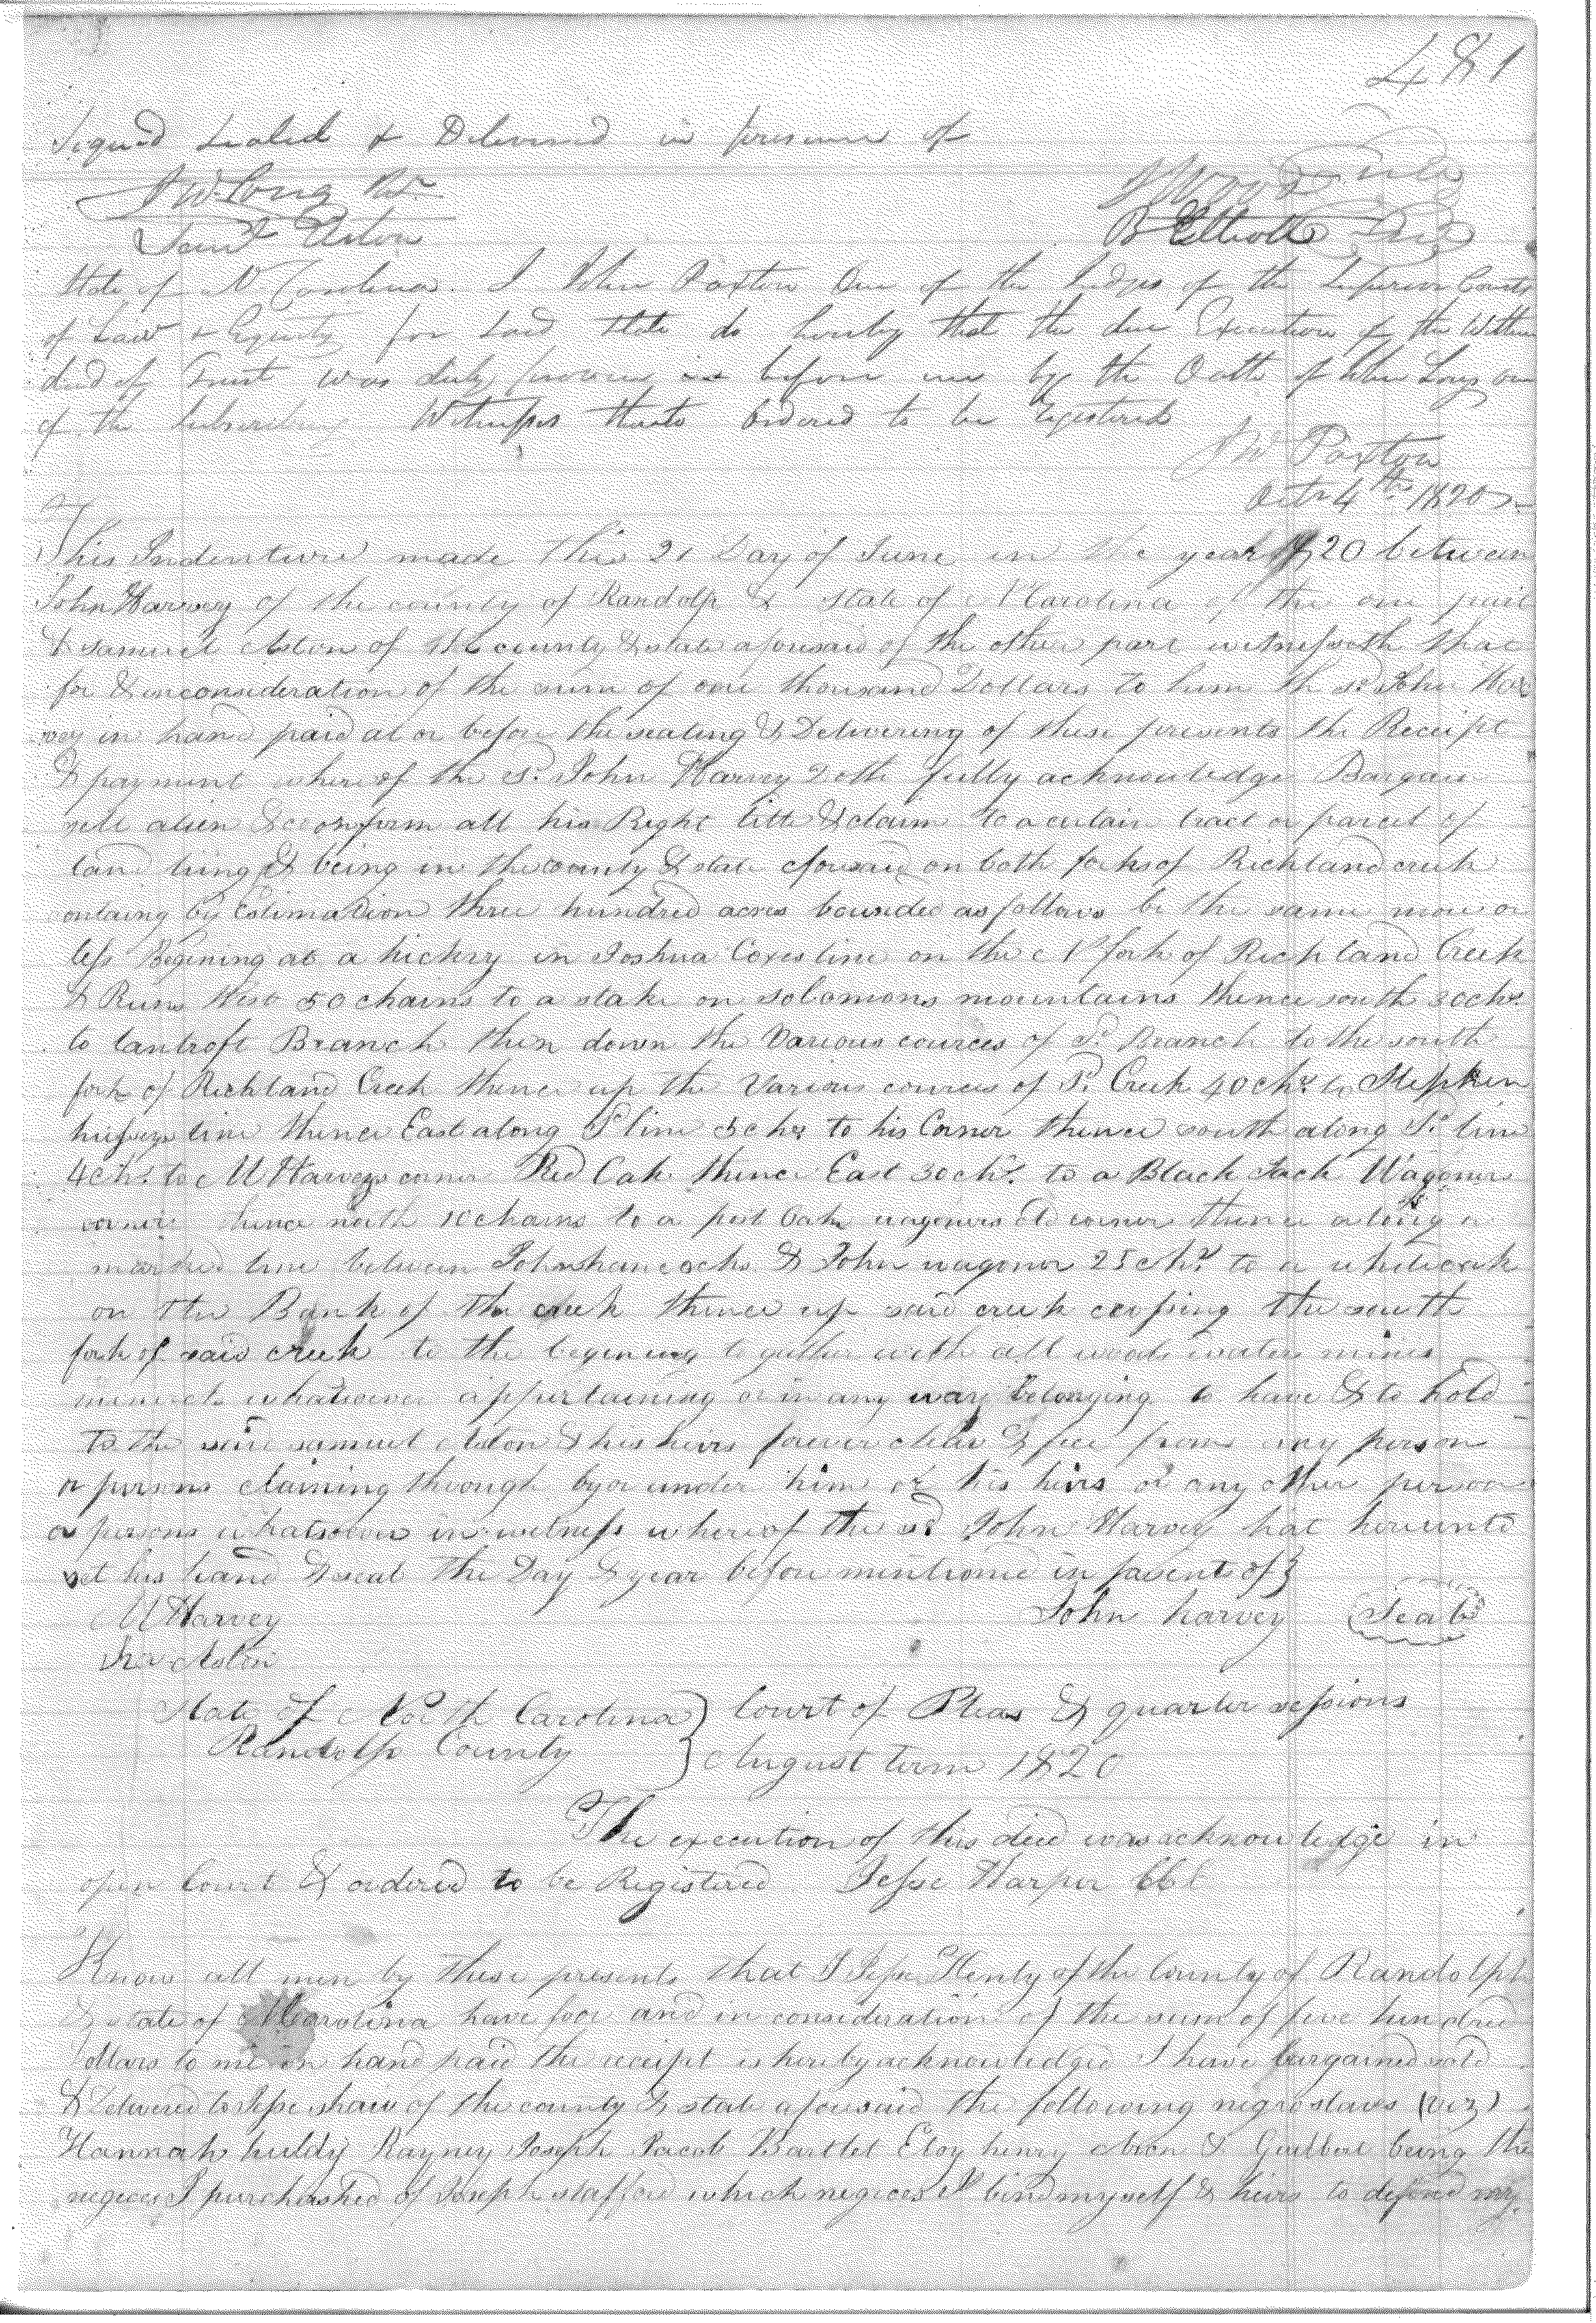 481
Signed Sealed & Delivered in presence of
J W Long Jr.
B Elliott Seal
State of N Carolina. I John Paxton One of the Judges of the Superior Courts
of Law & Equity for said State do hereby that the due Execution of the within
deed of Trust was duly proven before me by the Oath of John Long one
of the Subscribing Witnesses thereto Ordered to be registered
Jno Paxton
Octr 4th 1820
This Indenture made this 21 Day of June in the year 1820 between
John Harvey of the county of Randolp & state of N Carolina of the one part
& samuel Aston of the county & state aforesaid of the other part witnesseth that
for & inconsideration of the sum of one thousand Dollars to him th sd. John Har
vey in hand paid at or before the sealing & Delivering of these presents the Receipt
& payment where of the sd. John Harvey Doth fully acknowledge Bargain
sell alien & coonfirm all his Right title & claim to a certain tract or parcel of
land liing & being in the county & state aforesaid on both forks of Richland creek
containg by Estimation three hundred acres bounded as follows be the same more or
less Begining at a hickry in Joshua Coxes line on the N fork of Richland Creek
& Runs West 50 chains to a stake on solomons mountains thence south 30 chs.
to Branch then down the Various cources of sd. Branch to the south
fork of Richland Creek thence up the Various cources of sd. Creek 40 chs. to Stephen
husseys line thence East along sd line 5 chs to his Corner thence south along sd. line
4 chs. to M Harveys corner Red Oak thence East 30 chs. to a Black Jack Wagoners
corner thence north 10 chains to a post Oak wagoners Old corner thence along a
marked line between John hancocks & John wagoner 25 chs. to a whiteoak
on the Bank of the creek thence up said creek crossing the south
fork of said creek to the begining together with all woods waters mines
minerels whatsoever appurtaining or in any way belonging to have & to hold
To the said samuel Aston & his heirs forever clear & free from any person
or persons claiming through by or under him or his heirs or any other person
or persons whatsoever in witness whereof the sd. John Harvey hat hereunto
set his hand & seal the Day & year before mentioned in presents of
M Harvey John harvey Seal
Aston
State of North Carolina Court of Pleas & quarter sessions
Randolp County August term 1820
The execution of this deed was acknowledge in
open Court & ordered to be Registered Jesse Harper CCC
Know all men by these presents that I Jesse Henly of the County of Randolph
& state of N Carolina have foor and in consideration of the sum of five hundred
dollars to me in hand paid the receipt is hereby acknowledged I have bargained sold
& Delivered to Jesse shaw of the county & state aforesaid the following negro slaves (viz)
Hannah huldy Rayney Joseph Jacob Bartlet Eloy henry Aron & being the
negroes I purchased of Joseph stafford which negroes I bind myself & heirs to defend